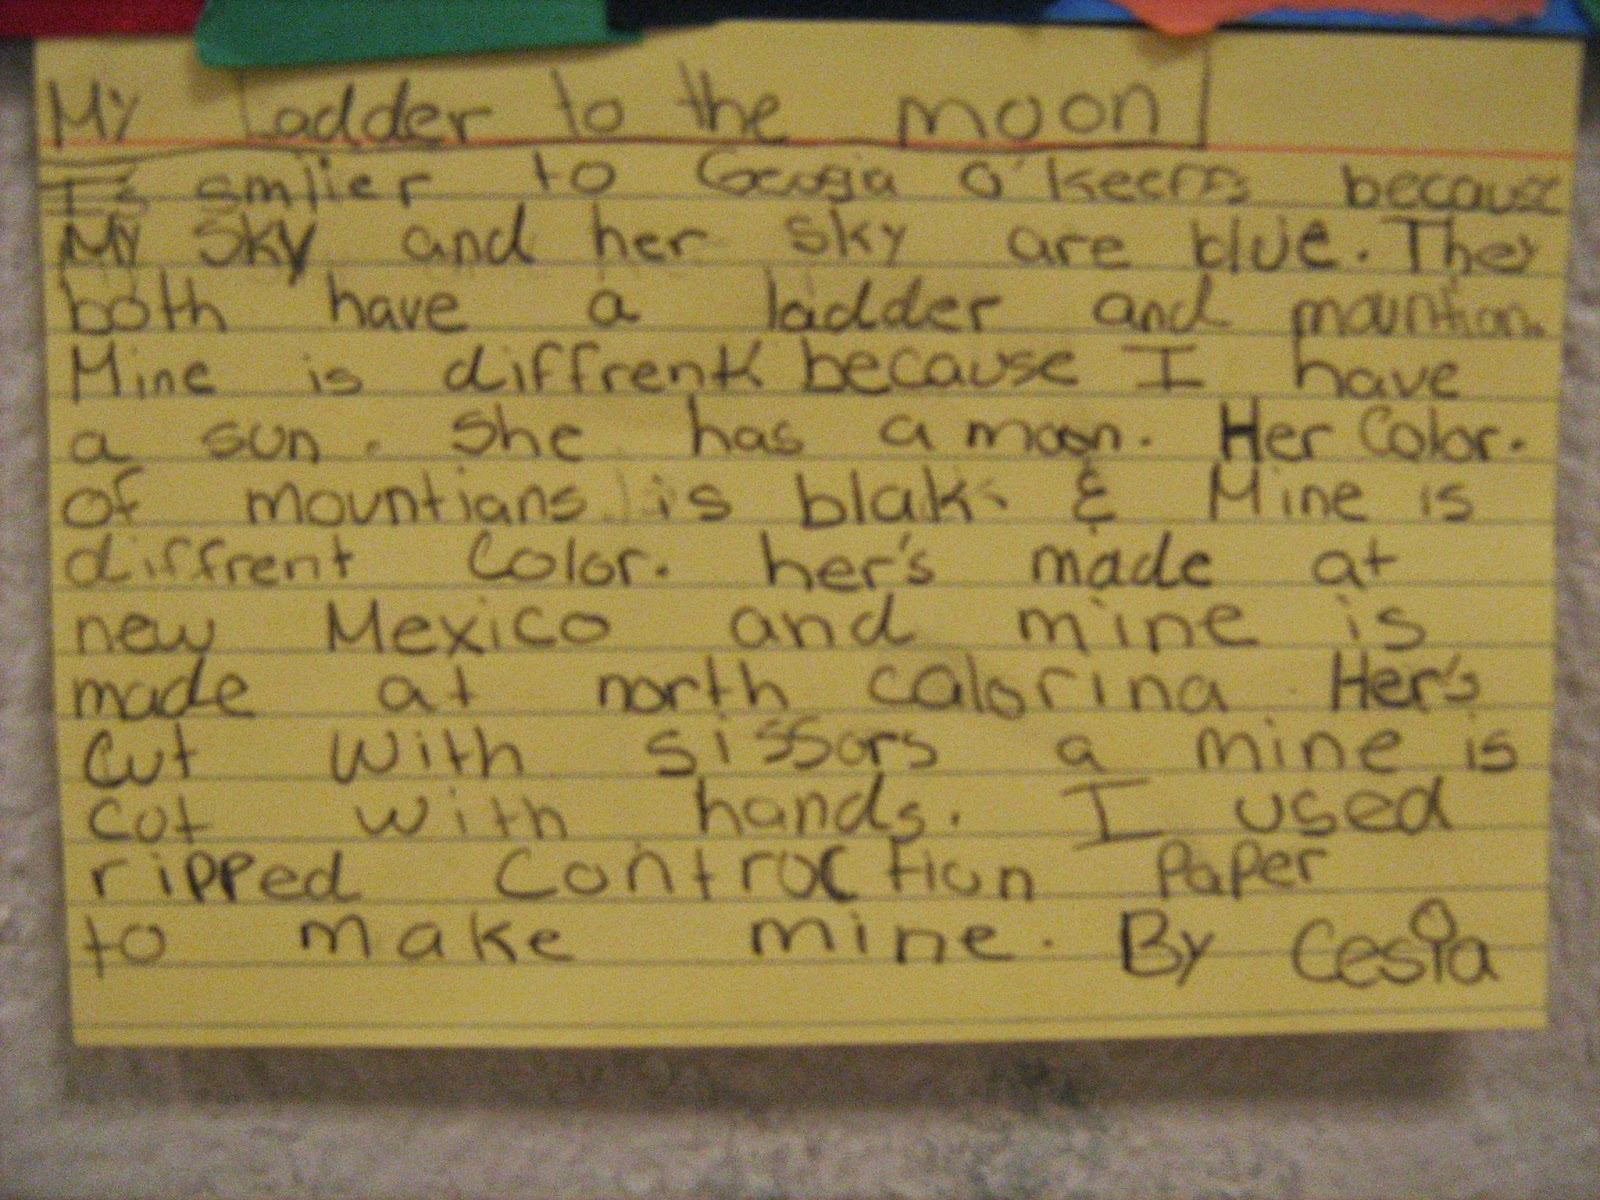 My Ladder to the moon
Is smlier to Geogia O'keeffs because
My Sky and her sky are blue. They
both have a ladder and mountian.
Mine is diffrent because I have
a sun. She has a moon. Her Color.
of mountians is blak & Mine is
diffrent Color. her's made at
new Mexico and mine is
made at north calorina Her's
cut with sissors a mine is
cut with hands. I used
ripped Contruction Paper
to make mine. By Cesia